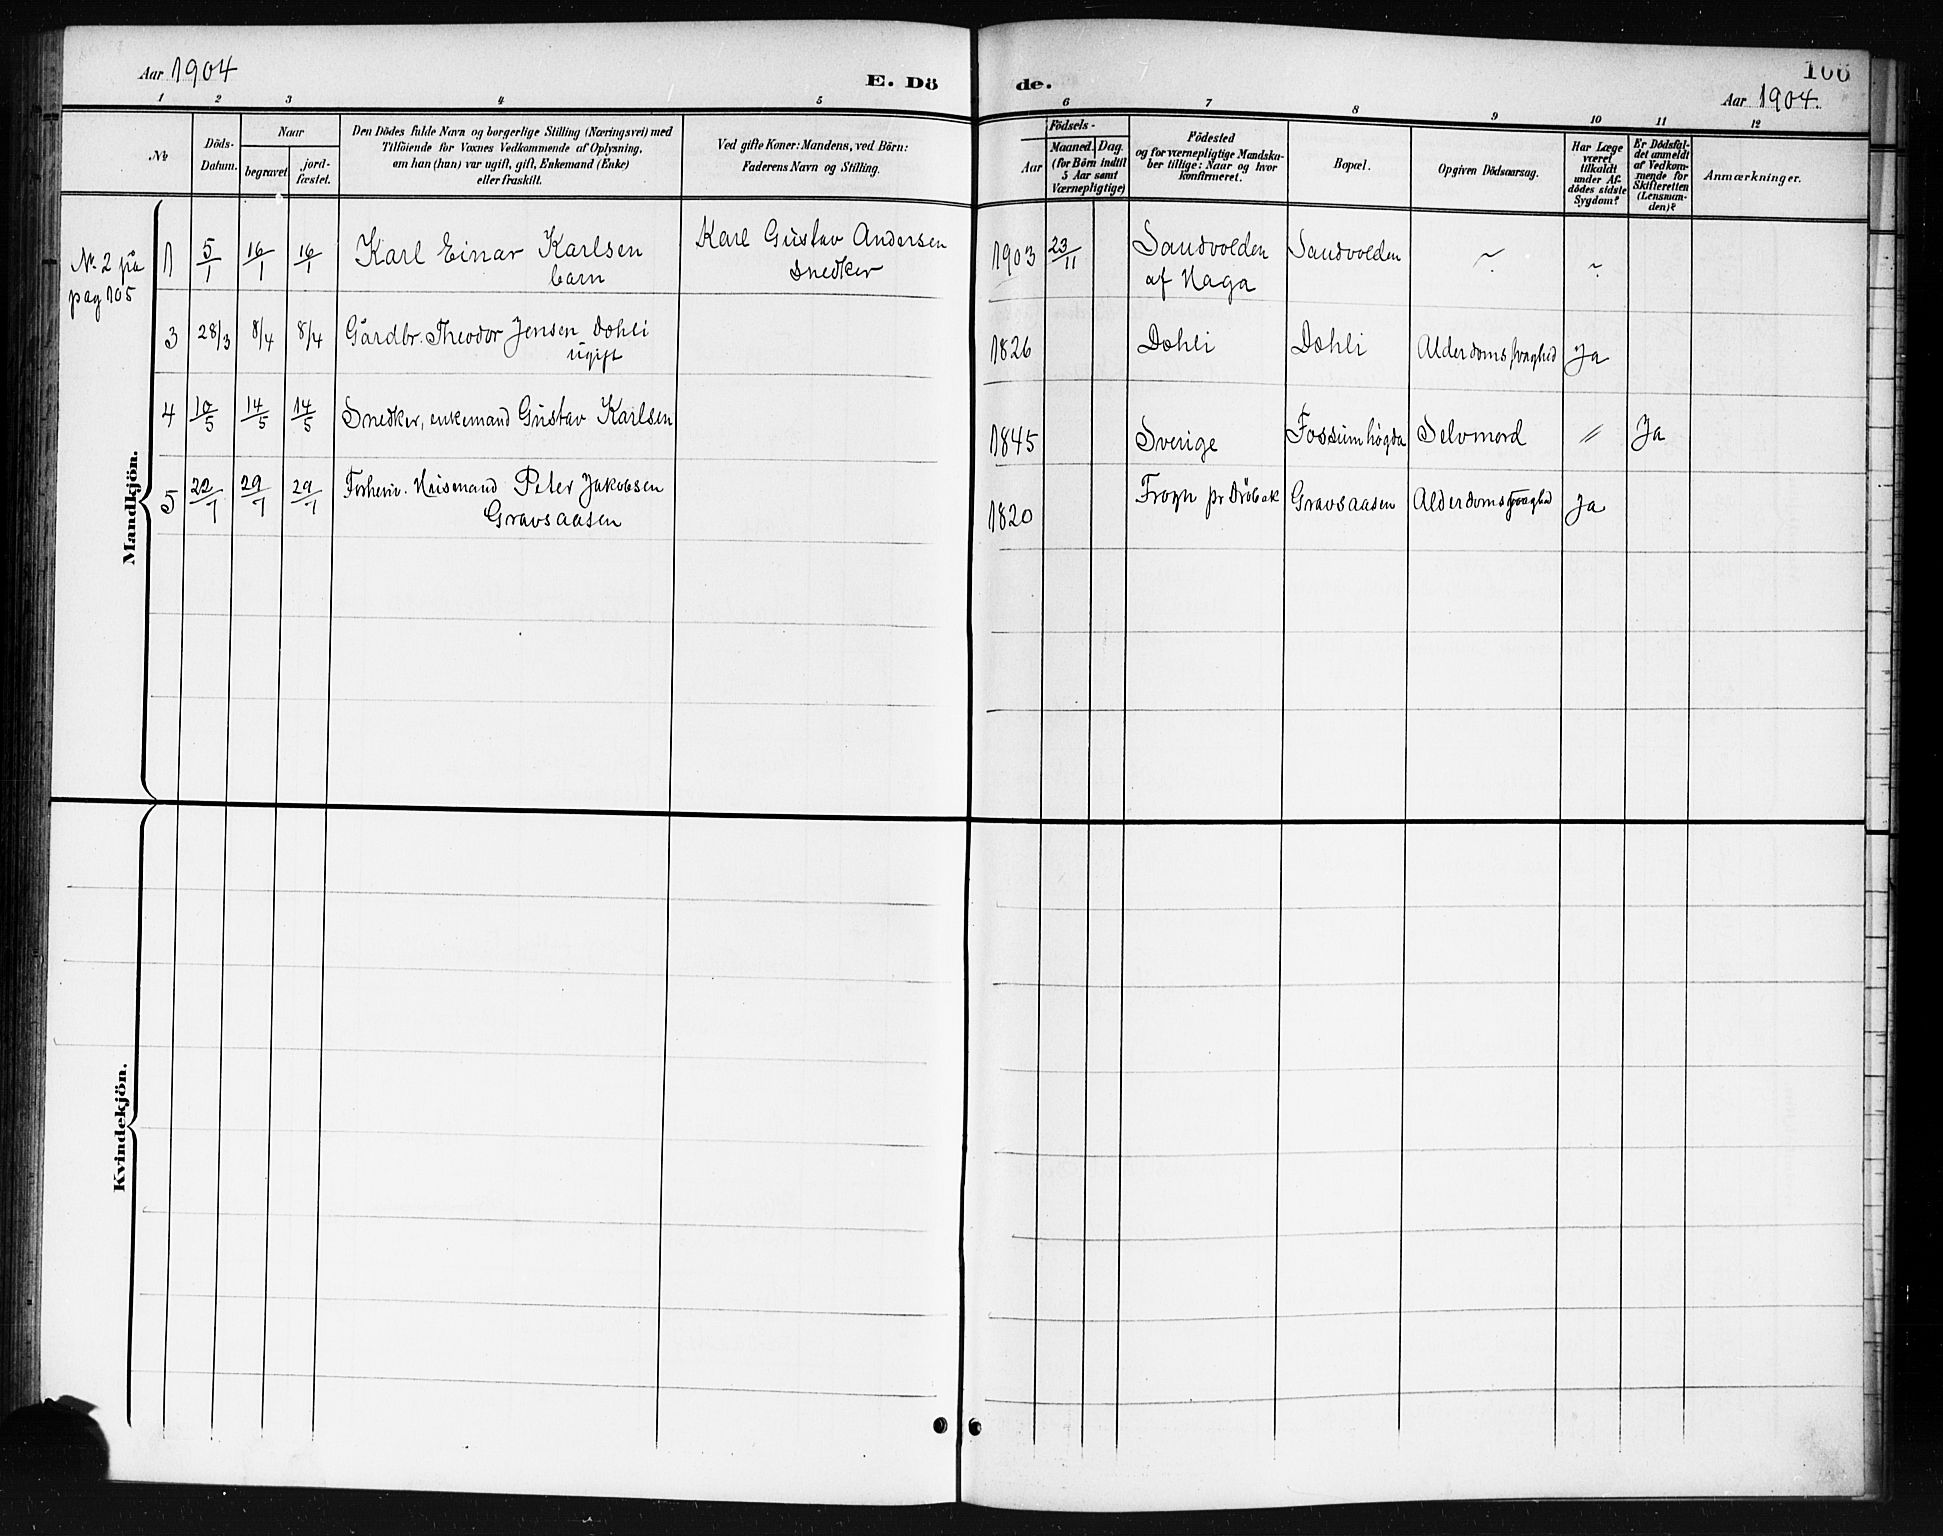 Aar 1904
E. Dö
de.
106
Aar 1904.
1 2 3 4 5
6 7 8 9 10 11 12
No
Döds-
Datum.
Naar
begravet
jord-
fæstet.
Den Dödes fulde Navn og borgerlige Stilling (Næringsvei) med
Tilföiende for Voxnes Vedkommende af Oplysning,
om han (hun) var ugift, gift, Enkemand (Enke)
eller fraskilt.
Ved gifte Koner: Mandens, ved Börn:
Faderens Navn og Stilling.
Födsels-
Aar
Maaned. Dag.
(for Börn indtil
5 Aar samt
Værnepligtige)
Födested
og for værnepligtige Mandska-
ber tillige: Naar og hvor
konfirmeret.
Bopæl.
Opgiven Dödsaarsag.
Har Læge
været
tilkaldt
under Af-
dödes sidste
Sygdom?
Er Dödsfal-
det anmeldt
af Vedkom-
mende for
Skifteretten
(Lensman-
den)?
Anmærkninger.
Nr. 2 på
pag 105
Mandkjön.
1 5/1 16/1 16/1 Karl Einar Karlsen
barn
Karl Gustav Andersen
snedker
1903 23/11 Sandvolden
af Haga
Sandvolden ~ ~
3 28/3 8/4 8/4 Gårdbr. Theodor Jensen Dæhli
ugift
1826 Dæhli Dæhli Alderdomssvaghed Ja
4 10/5 14/5 14/5 Snedker, enkemand Gustav Karlsen
1845 Sverige Fossumhøgda Selvmord " Ja
5 22/7 29/7 29/7 Forhenv. Husmand Peter Jakobsen
Gravsaasen
1820 Frogn pr Drøbak Gravsaasen Alderdomssvaghed Ja
Kvindekjön.